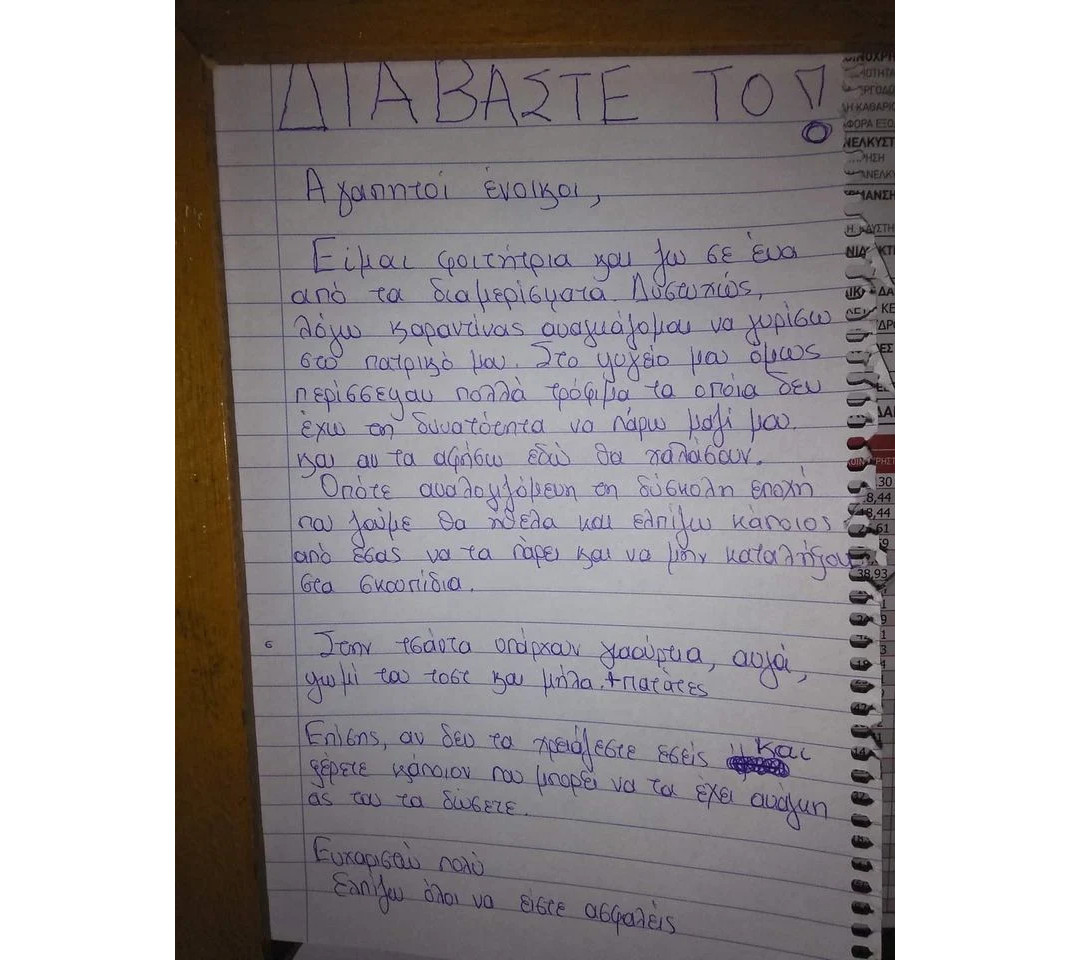 ΔΙΑΒΑΣΤΕ ΤΟ!
Αγαπητοί ένοικοι,
Είμαι φοιτήτρια και ζω σε ένα
από τα διαμερίσματα. Δυστυχώς,
λόγω καραντίνας αναγκάζομαι να γυρίσω
στο πατρικό μου. Στο ψυγείο μου όμως
περίσσεψαν πολλά τρόφιμα τα οποία δεν
έχω τη δυνατότητα να πάρω μαζί μου.
και αν τα αφήσω εδώ θα χαλάσουν.
Οπότε αναλογιζόμενη τη δύσκολη εποχή
που ζούμε θα ήθελα και ελπίζω κάποιος
από εσάς να τα πάρει και να μην καταλήξουν
στα σκουπίδια.
Στην τσάντα υπάρχουν γιαούρτια, αυγά,
ψωμί του τοστ και μήλα.+πατάτες
Επίσης, αν δεν τα χρειάζεστε εσείς και
ξέρετε κάποιον που μπορεί να τα έχει ανάγκη
ας του τα δώσετε.
Ευχαριστώ πολύ
Ελπίζω όλοι να είστε ασφαλείς
ΑΦΟΡΑ ΕΞΟ
ΑΝΕΛΚ
30
8,44
8,44
38,93